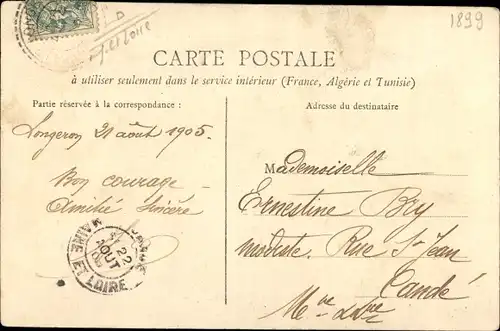 1899
et Loire
CARTE POSTALE
à utiliser seulement dans le service intérieur (France, Algérie et Tunisie)
Partie réservée à la correspondance :
Adresse du destinataire
Longeron 21 août 1905.
Bon courage
Amitié Sincère
Mademoiselle
Ernestine Bry
modiste. Rue St Jean
Candé
Mne Lre
22
AOUT
MAINE ET LOIRE